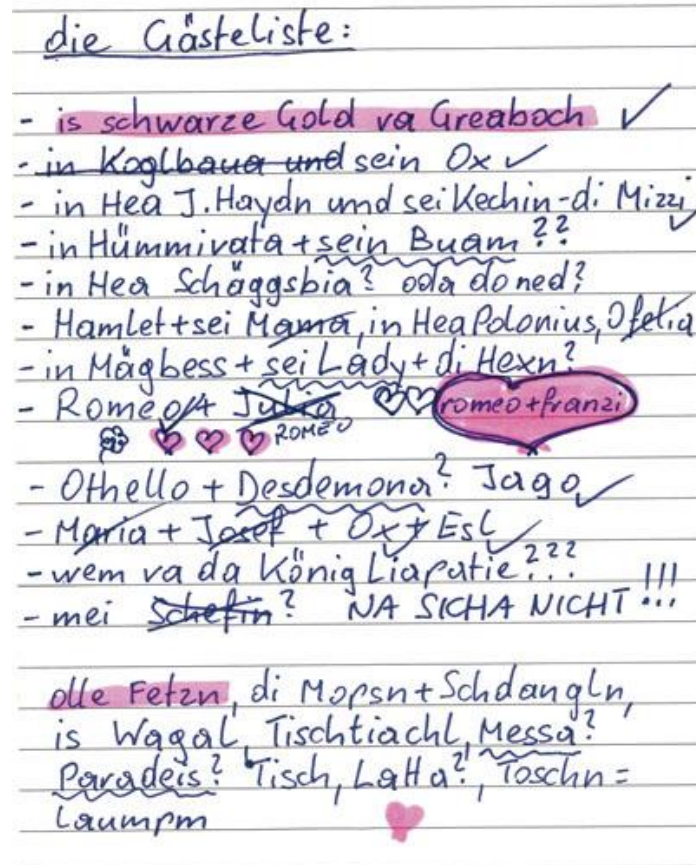 die Gästeliste:
- is schwarze Gold va Greaboch ✓
- in Koglbaua und sein Ox ✓
- in Hea J. Haydn und sei Kechin-di Mizzi ✓
- in Hümmivata + sein Buam??
- in Hea Schäggsbia? oda do ned?
- Hamlet + sei Mama, in Hea Polonius, Ofelia
- in Mägbess + sei Lady + di Hexn?
- Romeo + Julia romeo+franzi
ROMEO
- Othello + Desdemona? Jago ✓
- Maria + Josef + Ox + Esl ✓
- wem va da König Liapatie???
- mei Schefin? NA SICHA NICHT!!!
olle Fetzn, di Mopsn + Schdangln,
is Wagal, Tischtiachl, Messa?
Paradeis? Tisch, Latta?, Toschn=
Laumpm